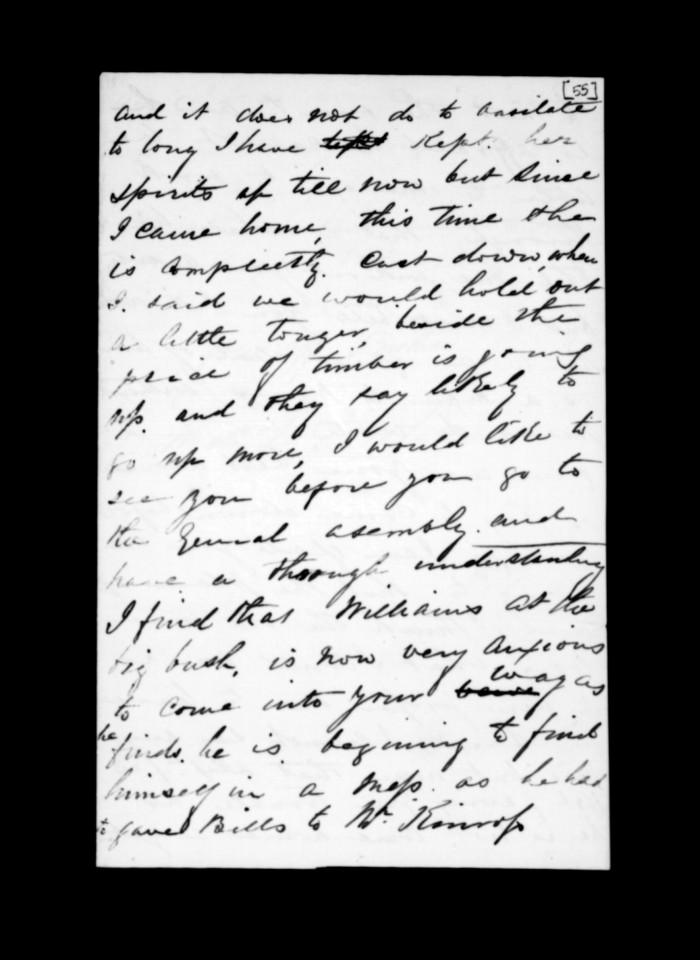 [55]
and it does not do to ansilate
to long I have kept Kept. her
spirits up till now but since
I came home, this time she
is compleetly. Cast down, when
I. said we would hold out
a little longer, beside the
price of timber is going
up. and they say likely to
go up more, I would like to
see you before you go to
the General asembly. and
have a through understanding
I find that Williams at the
big bush, is now very anxious
to come into your way as
he finds he is begining to find
himself in a mess. as he had
to gave Bills to Mr. Kinross